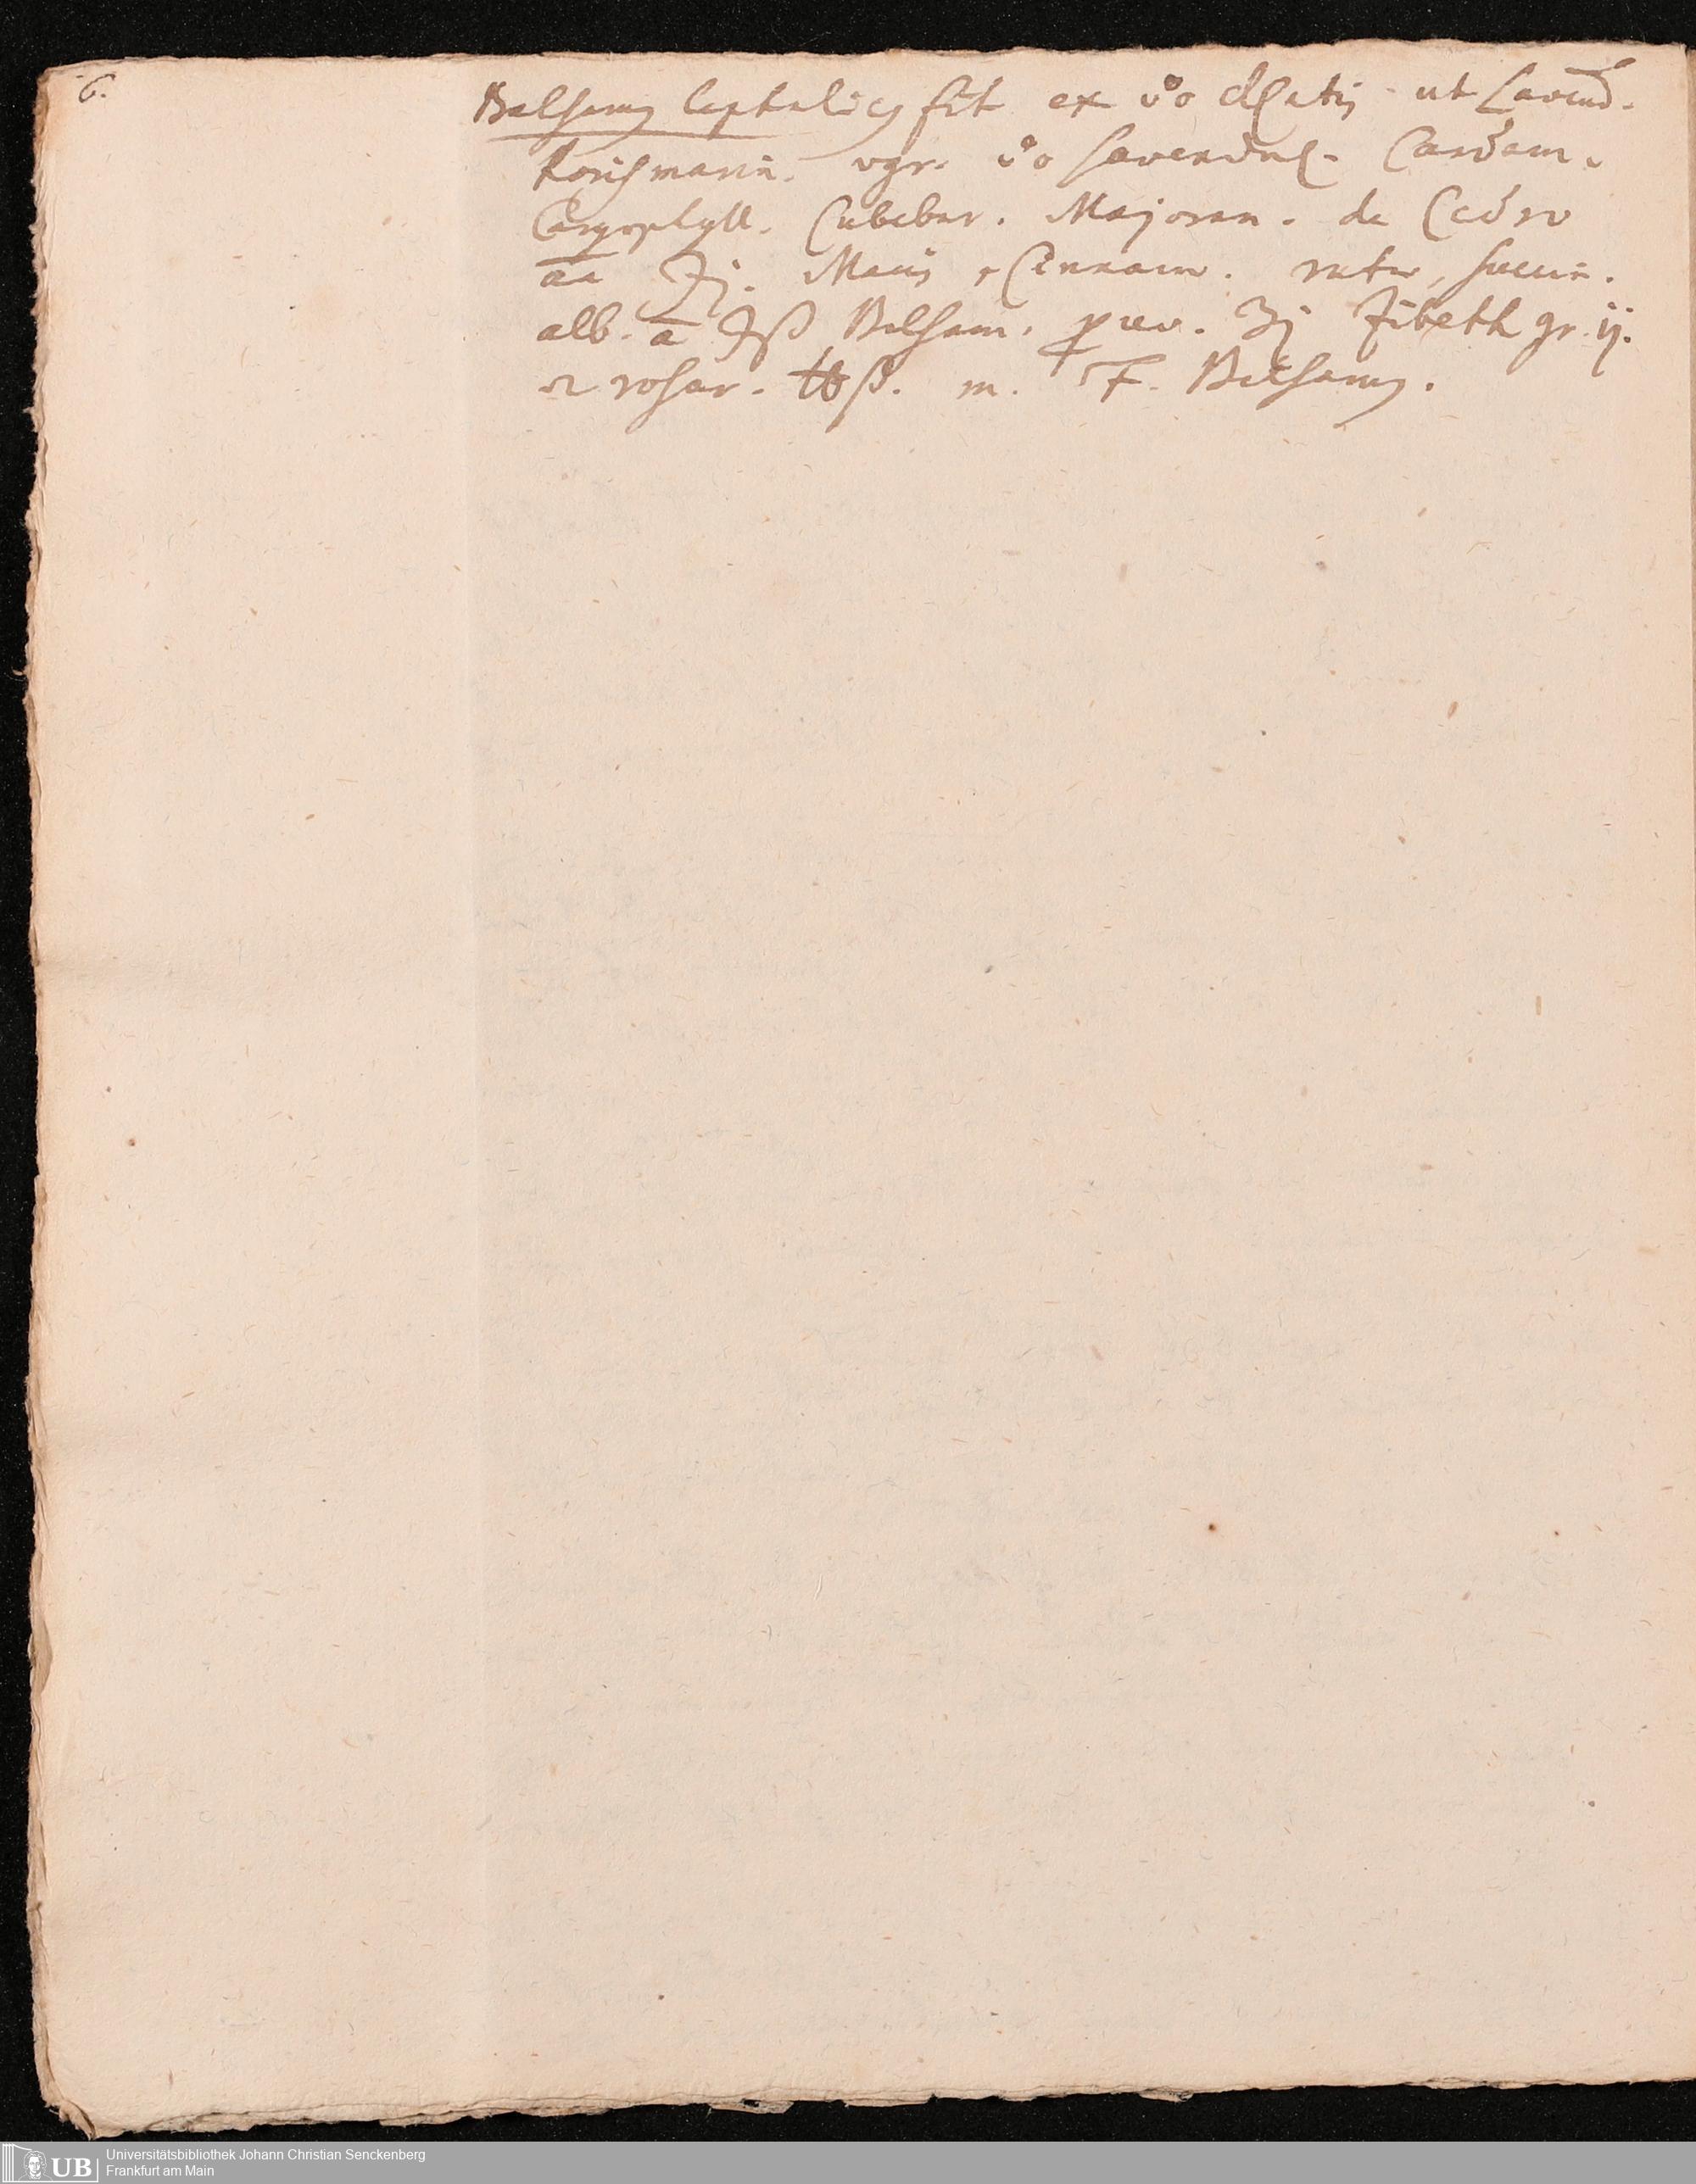 6.
Balsamꝰ Cephalicꝰ fit ex o°o dſtatis ut Lavend.
Rorismarin. vgr. o°o Lavendul. Cardam.
Caryophyll. Cubebar. Majoran. de Cedro
aa ʒj. Macis, Cinnam. rutæ, succin.
alb. a ℈ß Balsam. peruv. ʒj Zibeth gr. ij.
rosar. ℔ß. m. F. Balsamꝰ.
UB
Universitätsbibliothek Johann Christian Senckenberg
Frankfurt am Main